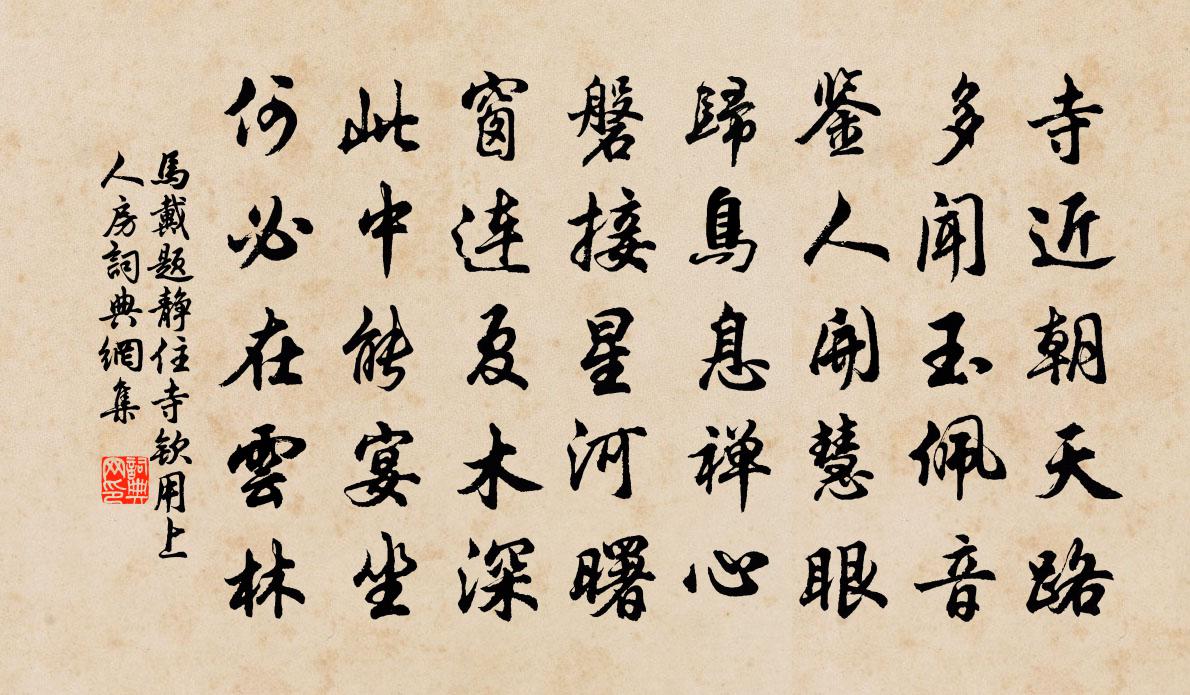 寺近朝天路
多闻玉佩音
鉴人開慧眼
歸鳥息禅心
磐接星河曙
窗連夏木深
此中能宴坐
何必在雲林
馬戴題静住寺欽用上
人房詞典網集
詞典网印